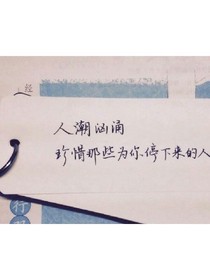 经
人潮汹涌
珍惜那些为你停下来的人
行